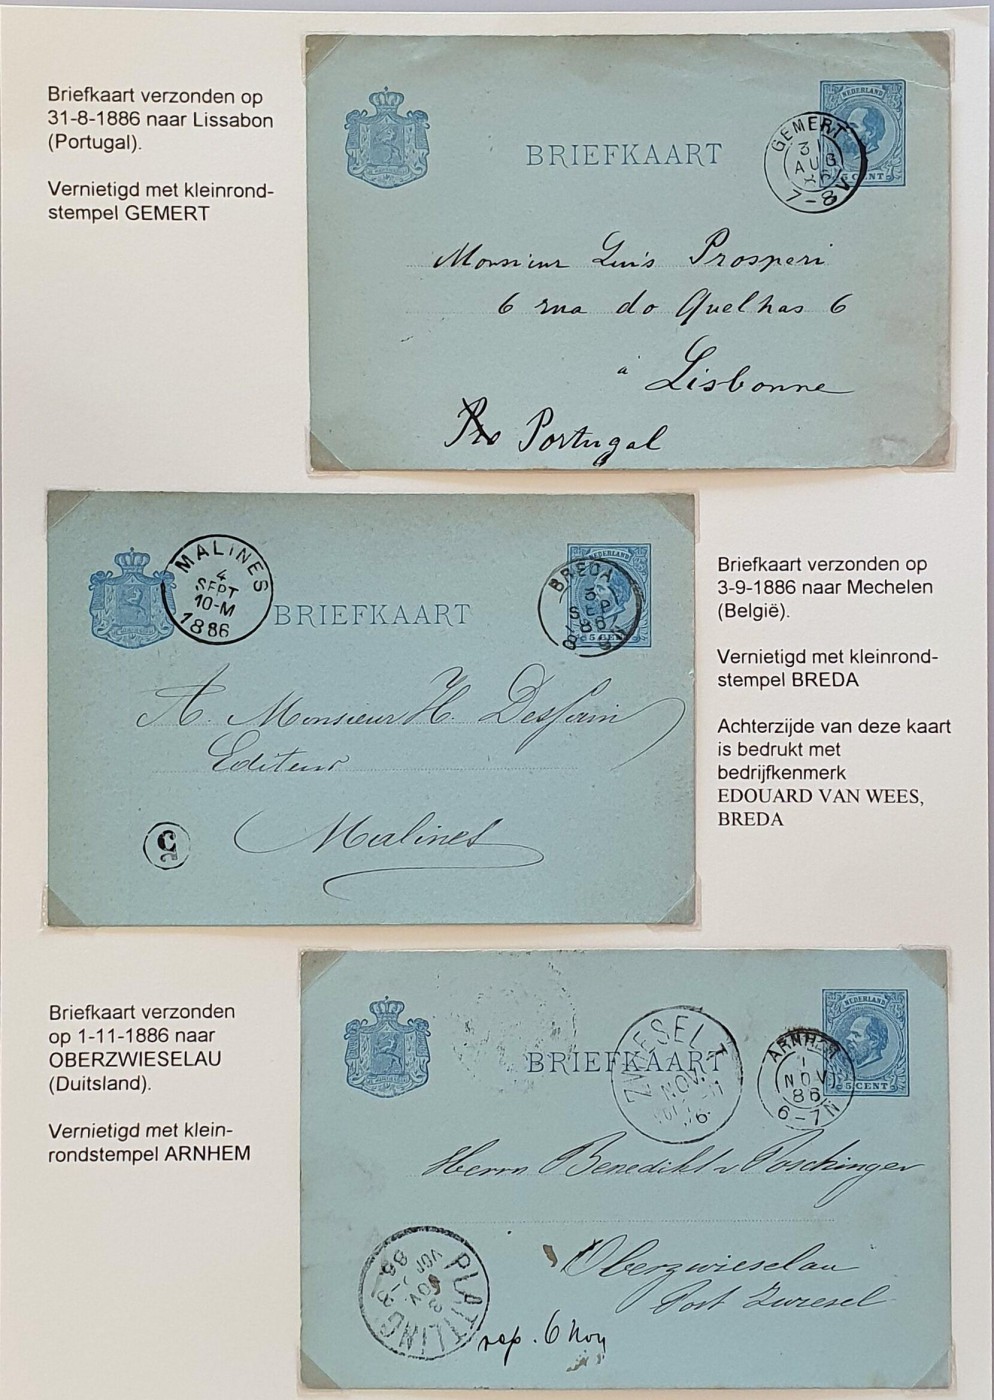 Briefkaart verzonden op
31-8-1886 naar Lissabon
(Portugal).
Vernietigd met kleinrond-
stempel GEMERT
BRIEFKAART
NEDERLAND
5 CENT
GEMERT
31
AUG
86
7-8V
Monsieur Luis Prosperi
6 rua do Quelhas 6
à Lisbonne
Pro Portugal
MALINES
4
SEPT
10-M
1886
BRIEFKAART
NEDERLAND
5 CENT
BREDA
3
SEP
86
8-9N
A. Monsieur H. Dessain
Editeur
Malines
5
Briefkaart verzonden op
3-9-1886 naar Mechelen
(België).
Vernietigd met kleinrond-
stempel BREDA
Achterzijde van deze kaart
is bedrukt met
bedrijfkenmerk
EDOUARD VAN WEES,
BREDA
Briefkaart verzonden
op 1-11-1886 naar
OBERZWIESELAU
(Duitsland).
Vernietigd met klein-
rondstempel ARNHEM
BRIEFKAART
NEDERLAND
5 CENT
ZWIESEL
NOV.
ARNHEM
1
NOV
86
6-7N
Herrn Benedikt v Poschinger
Oberzwieselau
Post Zwiesel
PLATTLING
3
NOV
86
rep. 6 Nov